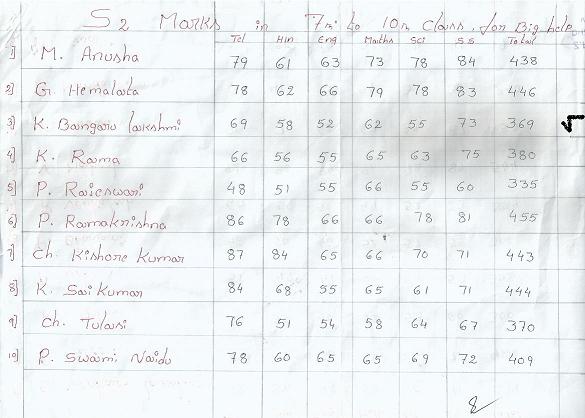 S2 Marks in 7th to 10th Class, for Big help
Tel Hin Eng Maths Sci S S Total
1] M. Anusha 79 61 63 73 78 84 438
2] G. Hemalata 78 62 66 79 78 83 446
3] K. Bangaru lakshmi 69 58 52 62 55 73 369 √
4] K. Rama 66 56 55 65 63 75 380
5] P. Rajeswari 48 51 55 66 55 60 335
6] P. Ramakrishna 86 78 66 66 78 81 455
7] Ch. Kishore Kumar 87 84 65 66 70 71 443
8] K. Sai Kumar 84 68 55 65 61 71 444
9] Ch. Tulasi 76 51 54 58 64 67 370
10] P. Swami Naidu 78 60 65 65 69 72 409